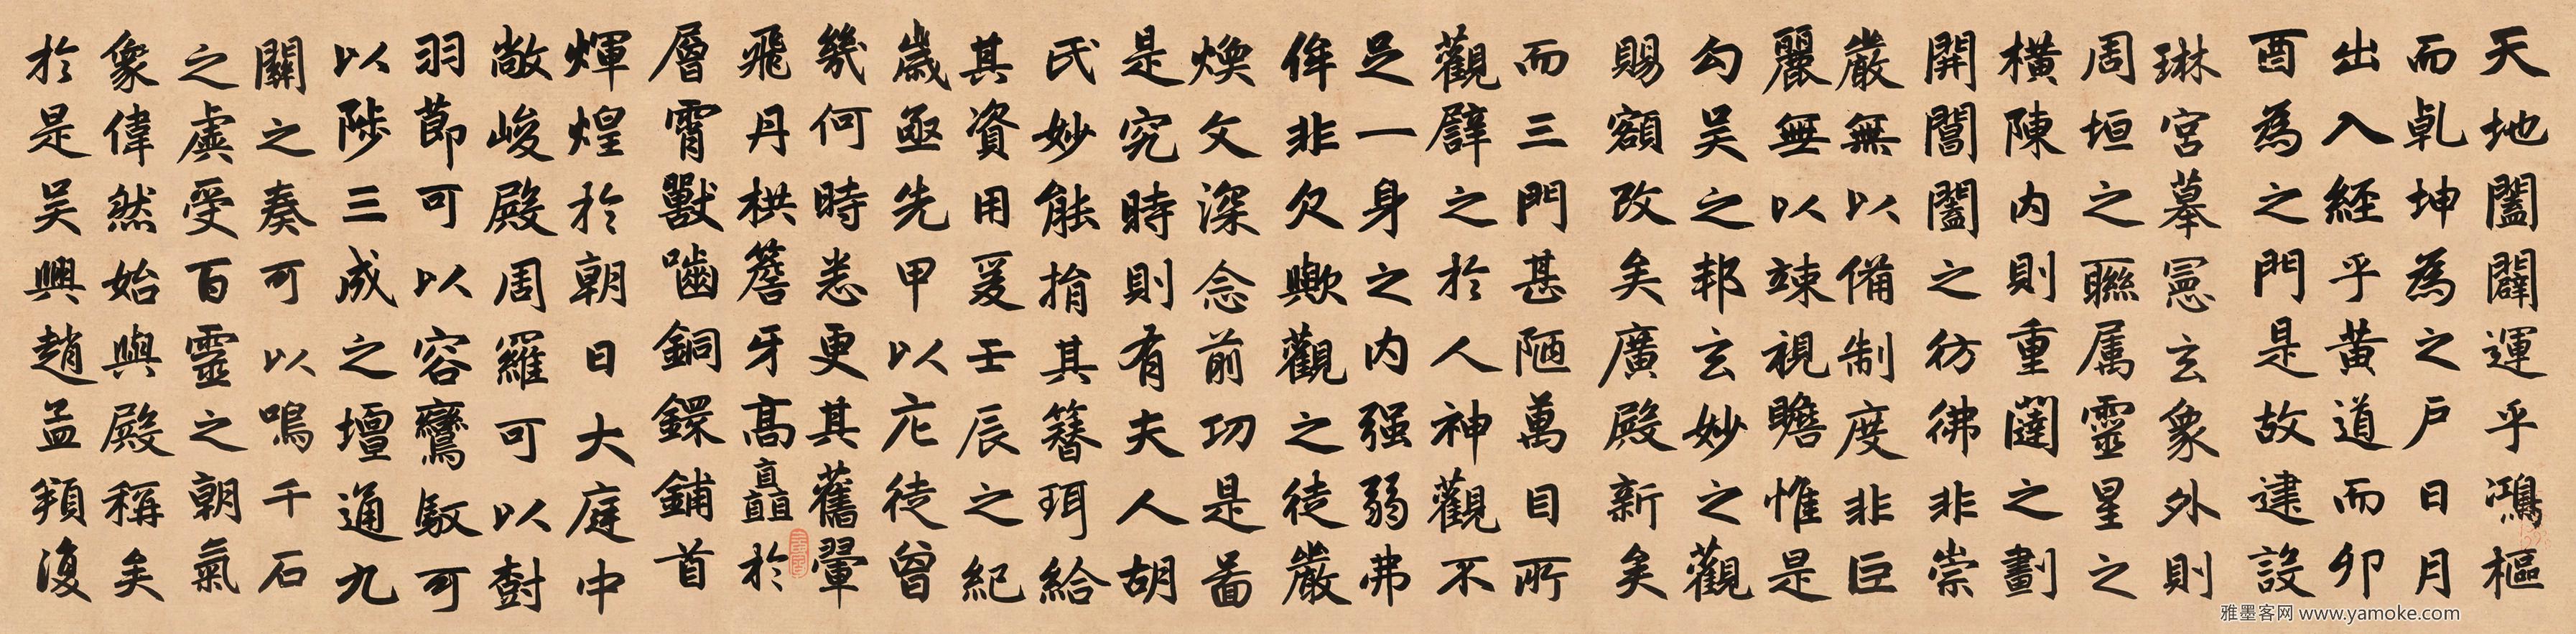 天地闔闢運乎鴻樞
而乹坤為之戶日月
出入經乎黃道而卯
酉為之門是故建設
琳宮摹憲玄象外則
周垣之聮属靈星之
橫陳內則重闥之劃
開閶闔之彷彿非崇
嚴無以備制度非巨
麗無以竦視瞻惟是
勾吴之邦玄妙之觀
賜額改矣廣殿新矣
而三門甚陋萬目所
觀譬之於人神觀不
足一身之內强弱弗
侔非欠歟觀之徒嚴
煥文深念前功是啚
是究時則有夫人胡
氏妙能捐其簪珥給
其資用爰壬辰之紀
歲亟先甲以庀徒曾
幾何時悉更其舊翬
飛丹栱簷牙高矗於
層霄獸嚙銅鐶鋪首
輝煌於朝日大庭中
敞峻殿周羅可以樹
羽節可以容鸞馭可
以陟三成之壇通九
關之奏可以鳴千石
之虡受百靈之朝氣
象偉然始與殿稱矣
於是吴興趙孟頫復
雅墨客网 www.yamoke.com